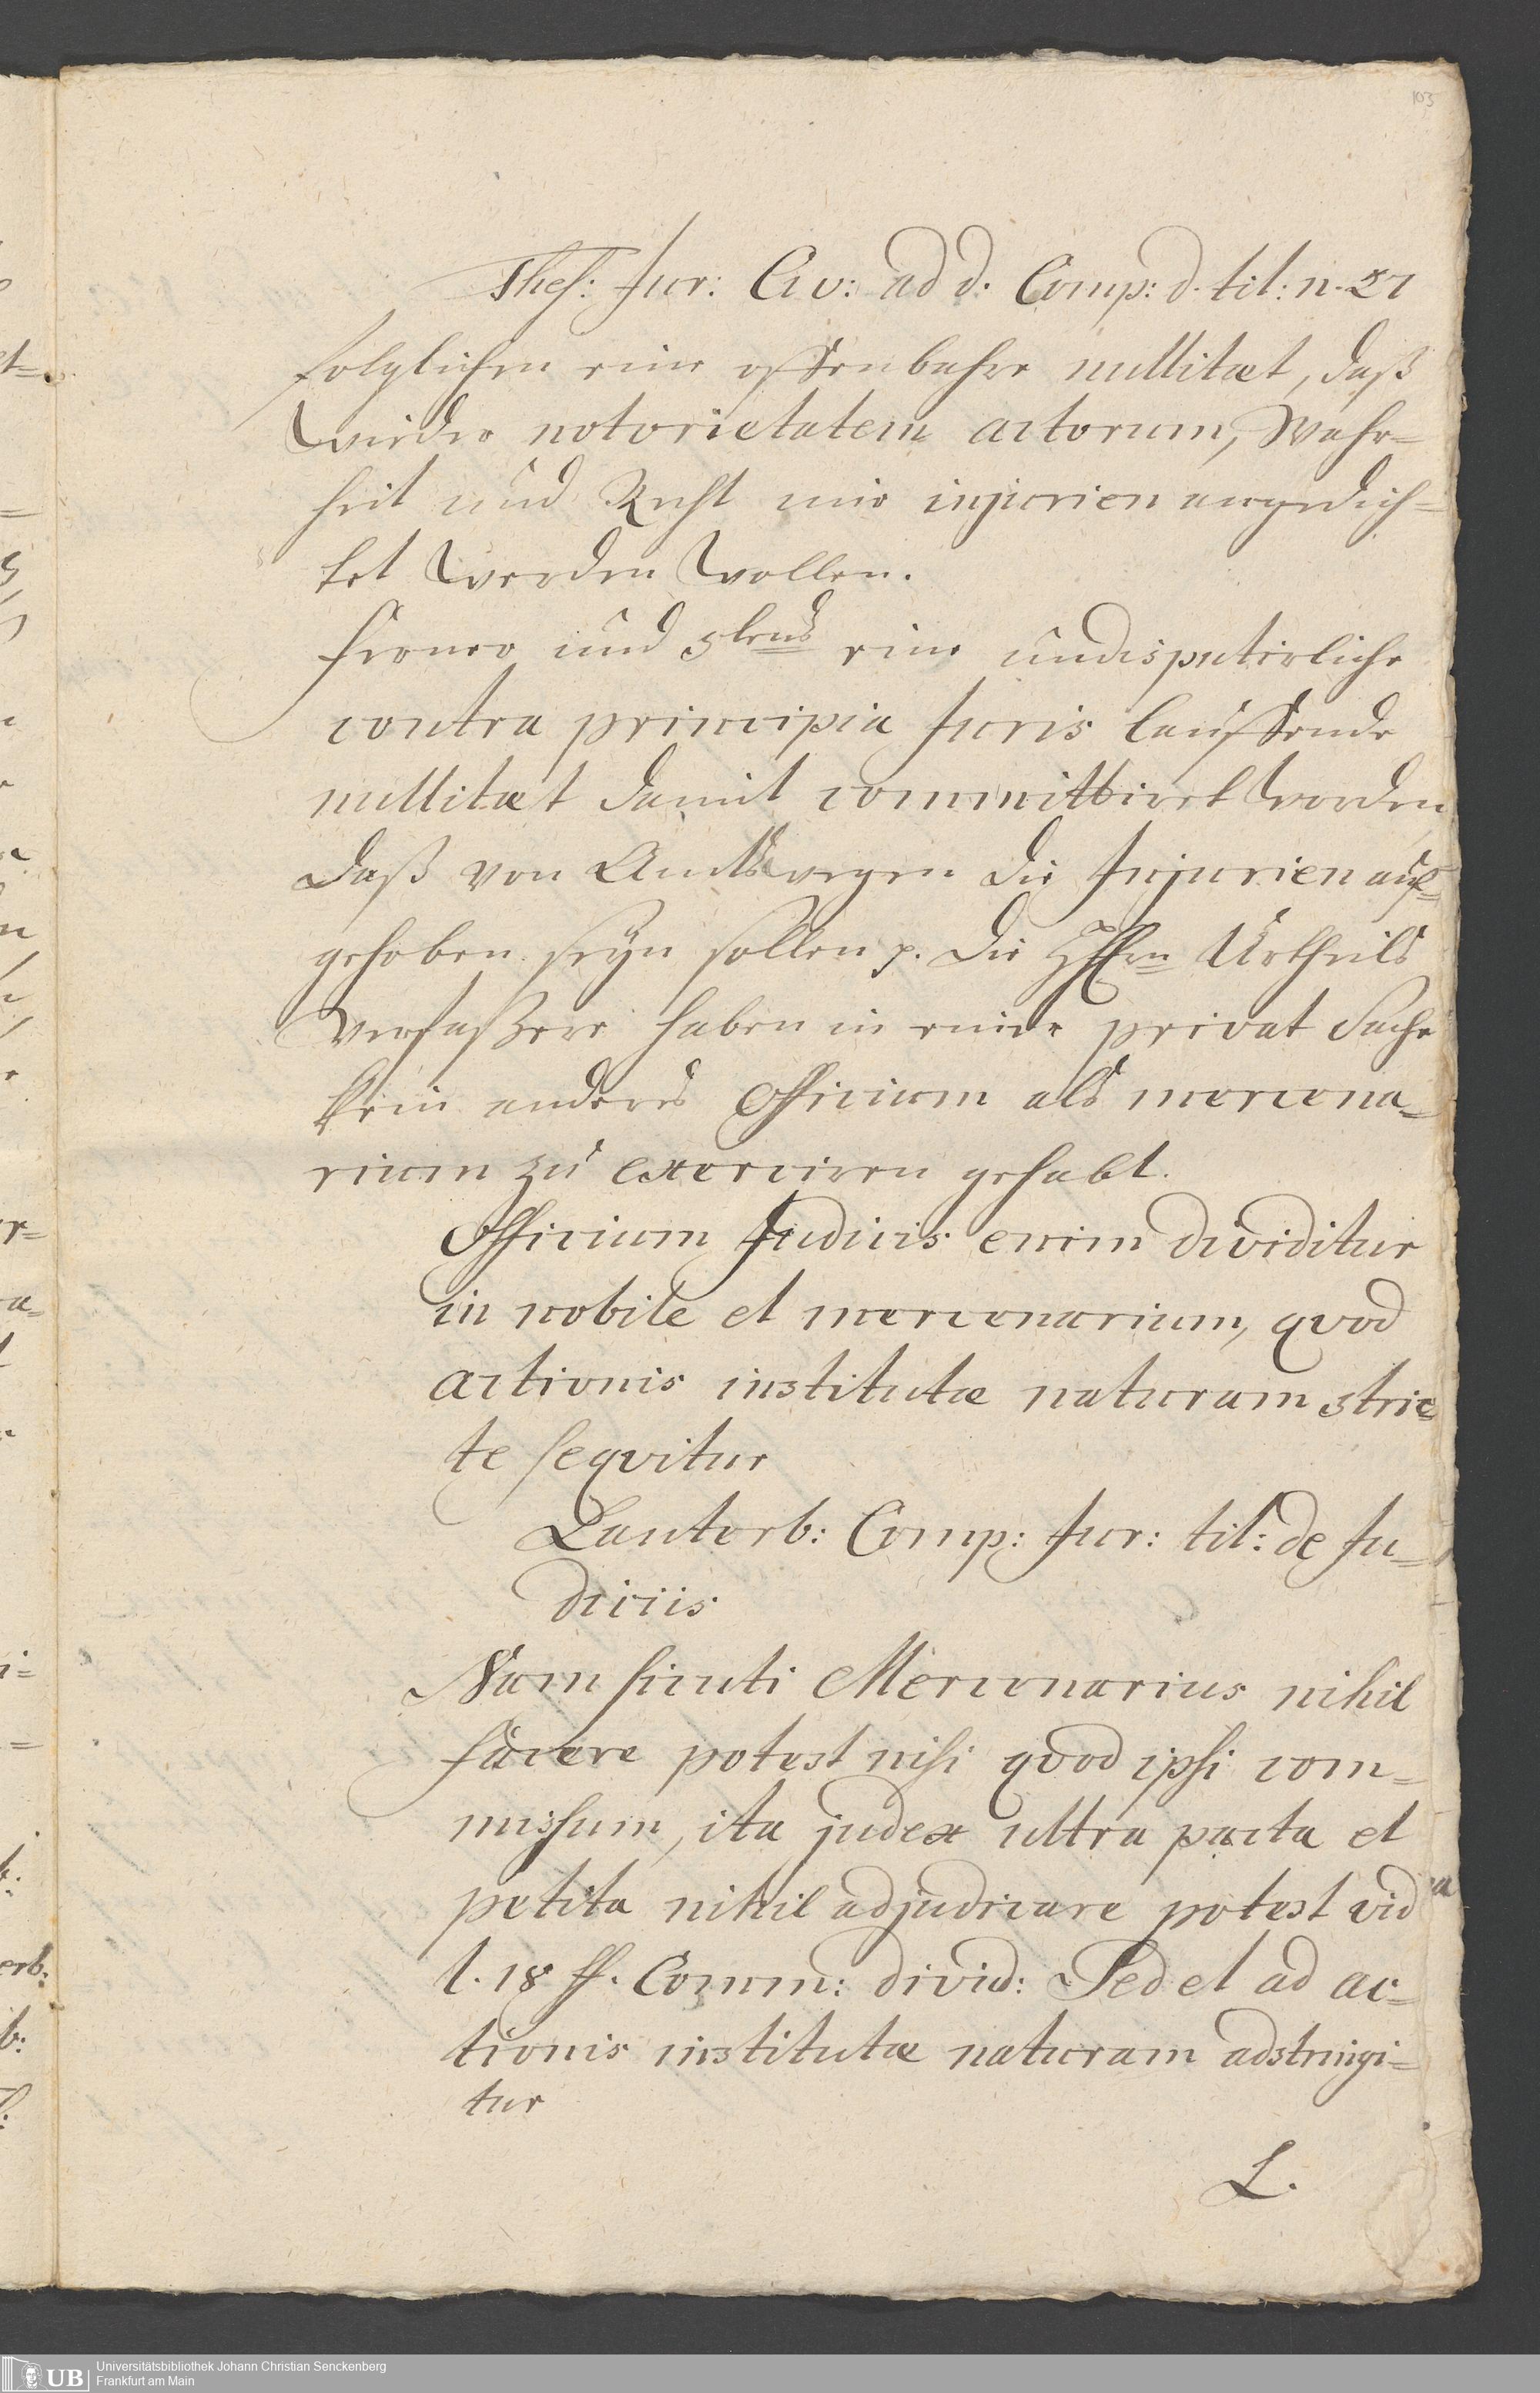 103
Thes: Jur: Civ: ad d. Comp: d. tit: n. 27
folglichen eine offenbahre nullitæt, daß
wieder notorietatem actorum, Wahr=
heit und Recht mir injurien angedich=
tet werden wollen.
Ferner und 5tens eine undisputirliche
contra principia Juris lauffende
nullitæt damit committiret worden
daß von Amtswegen die Injurien auf=
gehoben seyn sollen p. die HErrn Urtheils
Verfaßere haben in einer privat Sache
kein anderes Officium als mercena=
rium zu exerciren gehabt.
Officium Judicis enim dividitur
in nobile et mercenarium, qvod
actionis institutæ naturam stric
te seqvitur
Lauterb: Comp: Jur: tit: de Ju=
diciis
Nam sicuti Mercenarius nihil
facere potest nisi qvod ipsi com=
missum, ita judex ultra pacta et
petita nihil adjudicare potest vid
l. 18 ff. Comm: divid: Sed et ad ac=
tionis institutæ naturam adstringi=
tur
L.
UB
Universitätsbibliothek Johann Christian Senckenberg
Frankfurt am Main